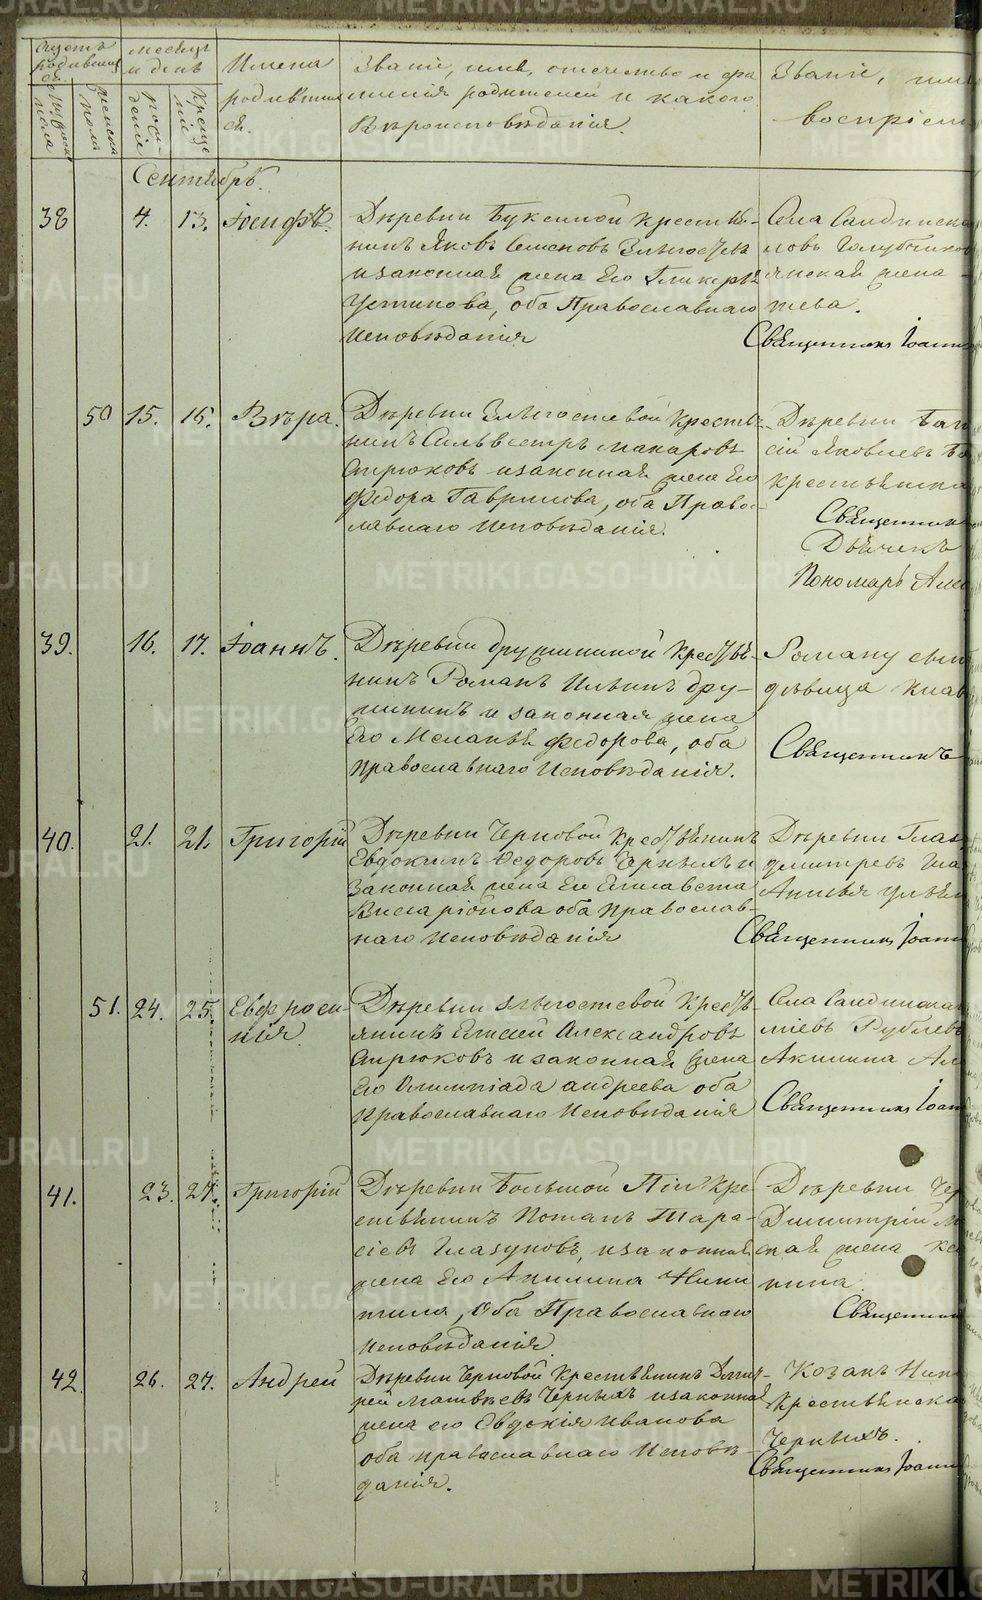 Счетъ родившихся
Месяцъ и день
Имена родившихся.
Званіе, имя, отечество и фамилія родителей и какого Вѣроисповѣданія.
Званіе, имя
воспріем
мужеска пола
женска пола
рожденіе
крещеніе
Сентябрь.
38
4.
13.
Іосифъ.
Деревни Букеиной крестья-
нинъ Яковъ Семеновъ
и законная жена Его Гликерія
Устинова, оба Православнаго
Исповѣданія
Села
ловъ Голубчиковъ
янская жена
тева.
Священникъ Іоанн
50
15.
15.
Вѣра.
Деревни крестья-
нинъ Сильвестръ Макаровъ
Стрюковъ и законная жена Его
Федора Гаврилова, оба Право-
славнаго Исповѣданія.
Деревни
сій Яковлевъ
крестьянска
Священник
Дьячекъ
Пономарь Алек
39.
16.
17.
Іоаннъ.
Деревни Дружининой крестья-
нинъ Романъ Ильинъ Дру-
жининъ и законная жена
Его Меланья Федорова, оба
Православнаго Исповѣданія.
Роману
дѣвица Клав
Священникъ
40.
21.
21.
Григорій
Деревни Черновой Крестьянинъ
Евдокимъ Федоровъ Черныхъ и
Законная жена Его Елисавета
Висаріонова оба Православ-
наго Исповѣданія
Деревни Глаз
Димитревъ Гла
Анисья Ульян
Священникъ Іоанн
51.
24.
25.
Евфроси-
нія.
Деревни Крестья-
янинъ Елисей Александровъ
Стрюковъ и законная жена
Его Олимпіада Андреева оба
Православнаго Исповѣданія
Села
міевъ Рублевъ
Акилина Ал
Священникъ Іоан
41.
23.
27.
Григорій
Деревни Большой Кре-
стьянинъ Потапъ Тара-
сіевъ Глазуновъ, и законная
жена Его Акилина Ники-
тила, Оба Православнаго
Исповѣданія
Деревни Чер
Димитрій М
ская жена Ксе
нина
Священник
42.
26.
27.
Андрей
Деревни Черновой Крестьянинъ Дмит-
рей Матвѣевъ Черныхъ и законная
жена его Евдокія Иванова
оба православнаго Исповѣ-
данія.
Козакъ Ник
Крестьянска
Черныхъ.
Священникъ Іоанн
METRIKI.GASO-URAL.RU